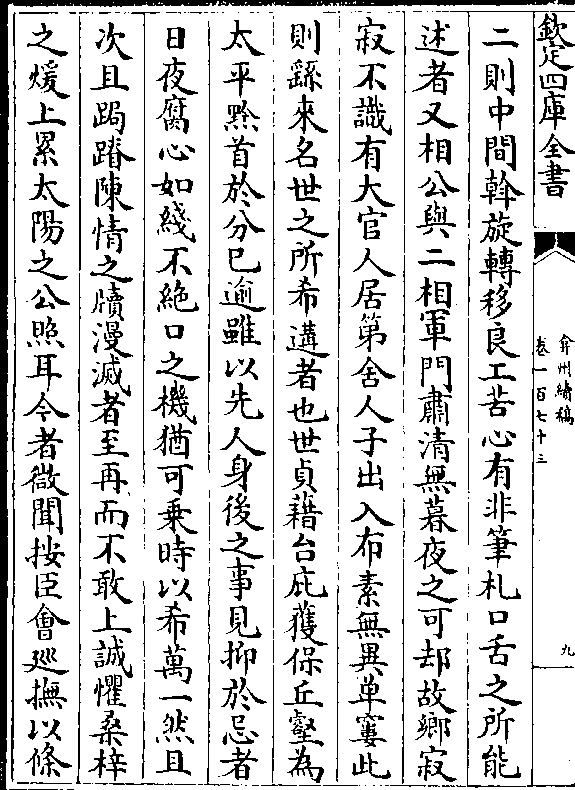 欽定四庫全書
弇州續稿
卷一百七十三
九
二則中間斡旋轉移良工苦心有非筆札口舌之所能
述者又相公與二相軍門肅清無暮夜之可却故鄉寂
寂不識有大官人居第舍人子出入布素無異单寠此
則繇來名世之所希遘者也世貞藉台庇獲保丘壑為
太平黔首於分已逾雖以先人身後之事見抑於忌者
日夜腐心如綫不絶口之機猶可乗時以希萬一然且
次且跼蹐陳情之牘漫滅者至再而不敢上誠懼桑梓
之煖上累太陽之公照耳今者微聞按臣會廵撫以條